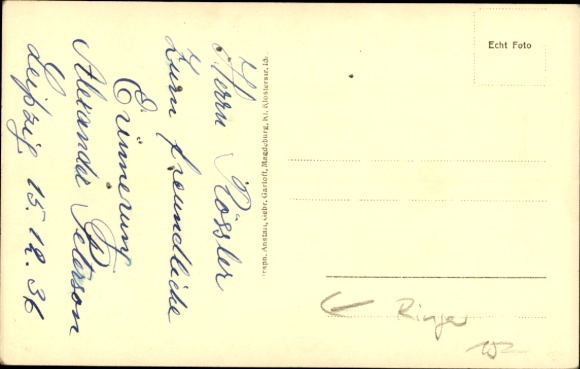 Herrn Rössler
zum freundliche
Erinnerung
Alexander Peterson
Leipzig 15.12.36
Anstalt, Gebr. Garloff, Magdeburg, Kl. Klosterstr. 15.
Echt Foto
Ringer